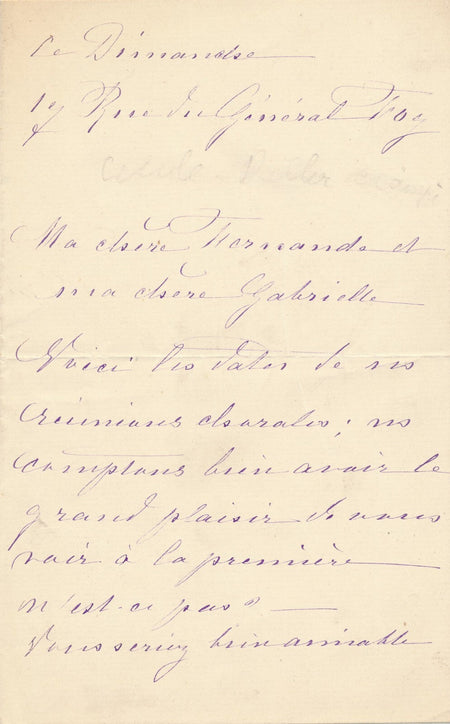 Ce Dimanche
17 Rue du Général Foy
Ma chère Fernande et
ma chère Gabrielle
Voici les dates de nos
réunions chorales ; ns
comptons bien avoir le
grand plaisir de vous
voir à la première
n'est-ce pas ?
Vous seriez bien aimable